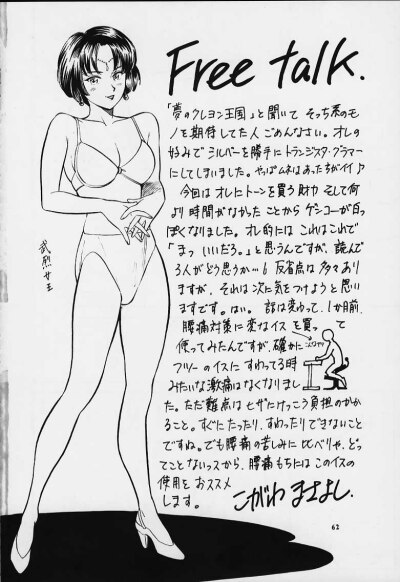 Free talk.
「夢のクレヨン王国」と聞いて そっち系のモ
ノを期待してた人 ごめんなさい。オレの
好みで シルバーを勝手に トランジスタ・グラマー
にしてしまいました。やっぱムネはあった方がイイ♪
今回は オレにトーンを買う財力 そして何
より 時間がなかった ことから ゲンコーが白っ
ぽくなりました。オレ的には これはこれで
「まっ いいだろ。」と思うんですが、読んで
る人がどう思うか…。反省点は 多々あり
ますが、それは次に気をつけようと思い
ますです。はい。 話は変わって、1か月前、
腰痛対策に変なイスを買って
使ってみたんですが、確かに こんなヤツ
フツーのイスに すわってる時
みたいな激痛はなくなりまし
た。ただ難点は ヒザにけっこう負担のかか
ること。すぐにたったり、すわったりできないこと
ですね。でも腰痛の苦しみに 比べりゃ、どっ
てことないっスから、腰痛もちには このイスの
使用を おススメ
します。
こがわ まさよし.
62